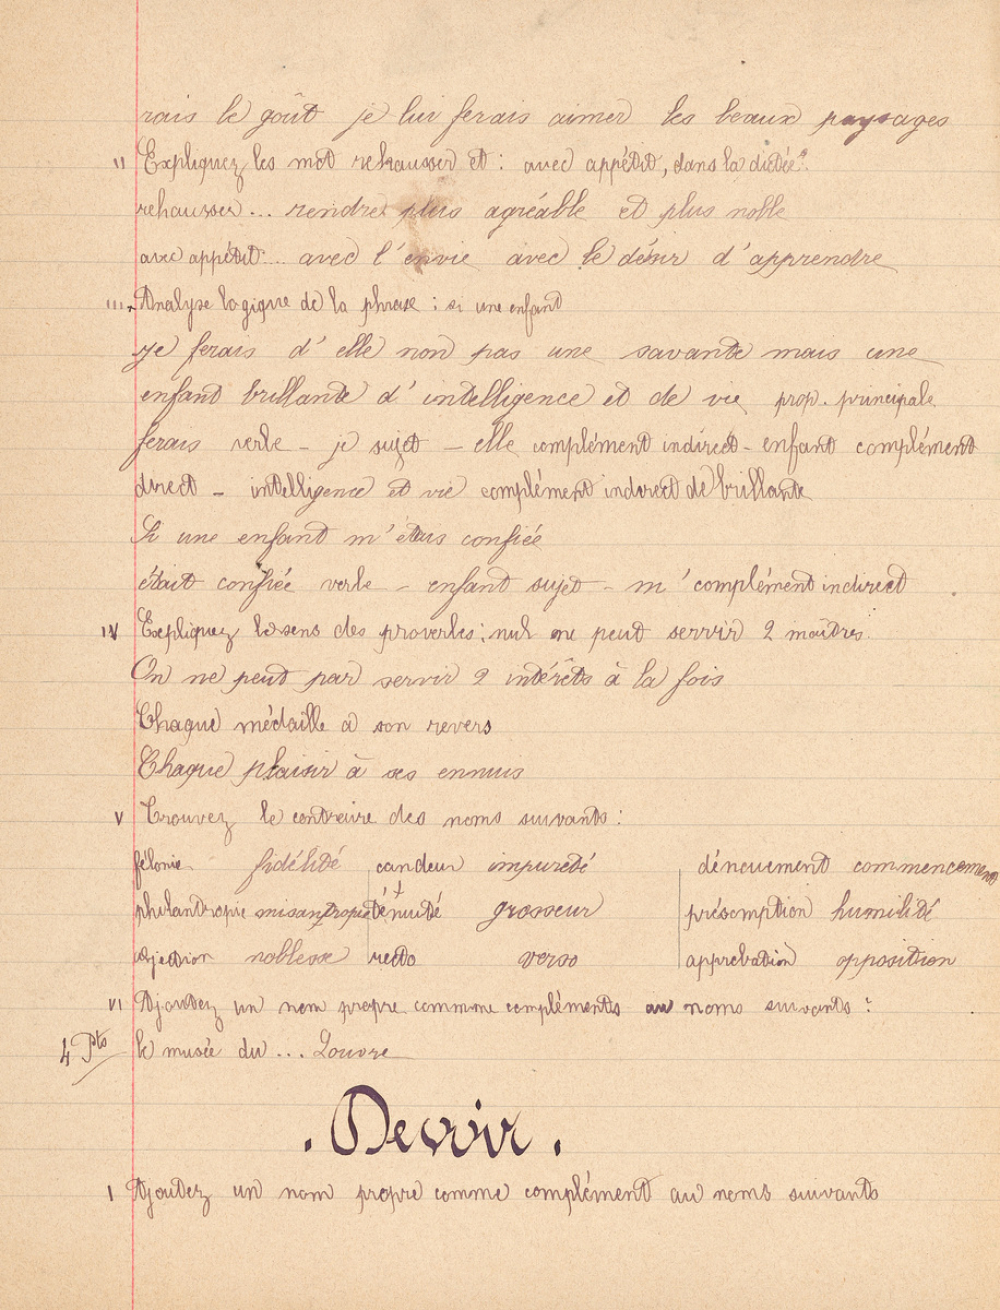 rais le goût je lui ferais aimer les beaux paysages
II Expliquez les mot rehausser et : avec appétit, dans la dictée.
rehausser... rendre plus agréable et plus noble
avec appétit... avec l'envie avec le désir d'apprendre
III. Analyse logique de la phrase : si une enfant
je ferais d'elle non pas une savante mais une
enfant brillante d'intelligence et de vie prop. principale
ferais verbe - je sujet - elle complément indirect - enfant complément
direct - intelligence et vie complément indirect de brillante
Si une enfant m'étais confiée
était confiée verbe - enfant sujet - m' complément indirect
IV Expliquez le sens des proverbes : nul ne peut servir 2 maîtres.
On ne peut par servir 2 intérêts à la fois
Chaque médaille a son revers
Chaque plaisir à ses ennuis
V Trouvez le contraire des noms suivants :
félonie fidélité candeur impureté dénouement commencement
philantropie misantropie ténuité grosseur présomption humilité
abjection noblesse recto verso approbation opposition
VI Ajoutez un nom propre comme compléments au noms suivants :
4 Pts le musée du ... Louvre
. Devoir .
I Ajoutez un nom propre comme complément au noms suivants